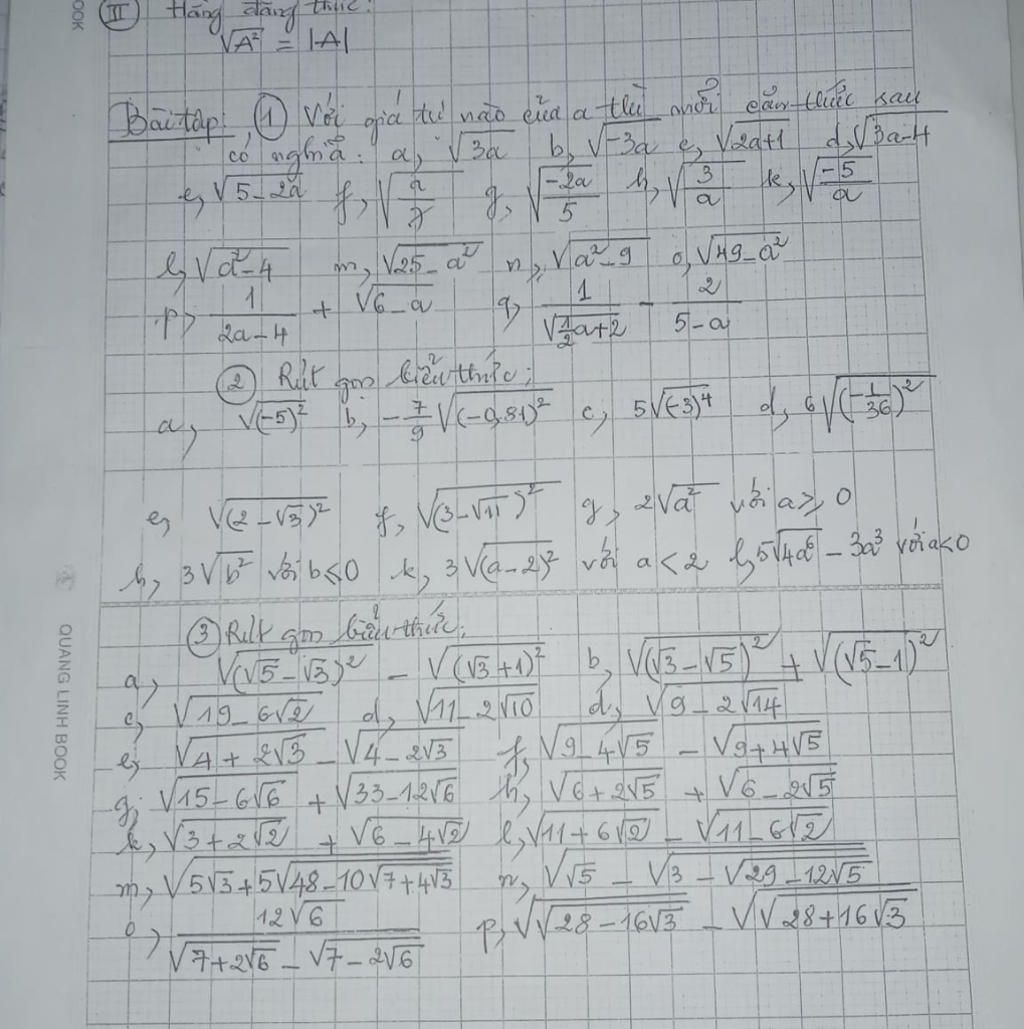 OOK
II Hằng đẳng thức:
√A² = |A|
Bài tập: ① Với giá trị nào của a thì mỗi căn thức sau
có nghĩa: a, √3a b, √-3a c, √2a+1 d, √3a-4
e, √5-2a f, √(a/7) g, √(-2a/5) h, √(3/a) k, √(-5/a)
l, √a²-4 m, √25-a² n, √a²-9 o, √49-a²
p, 1/(2a-4) + √6-a q, 1/√(½a+2) - 2/(5-a)
② Rút gọn biểu thức:
a, √(-5)² b, -7/9 √(-0,81)² c, 5√(-3)⁴ d, 6√(-1/36)²
e, √(2-√3)² f, √(3-√11)² g, 2√a² với a ≥ 0
h, 3√b² với b ≤ 0 k, 3√(a-2)² với a < 2 l, 5√4a⁶ - 3a³ với a < 0
③ Rút gọn biểu thức:
a, √(√5-√3)² - √(√3+1)² b, √(√3-√5)² + √(√5-1)²
c, √19-6√2 d, √11-2√10 d, √9-2√14
e, √4+2√3 - √4-2√3 f, √9-4√5 - √9+4√5
g, √15-6√6 + √33-12√6 h, √6+2√5 + √6-2√5
k, √3+2√2 + √6-4√2 l, √11+6√2 - √11-6√2
m, √(5√3+5√(48-10√(7+4√3))) n, √(√5-√(3-√(29-12√5)))
o, 12√6/(√(7+2√6) - √(7-2√6)) p, √√(28-16√3) - √√(28+16√3)
QUANG LINH BOOK